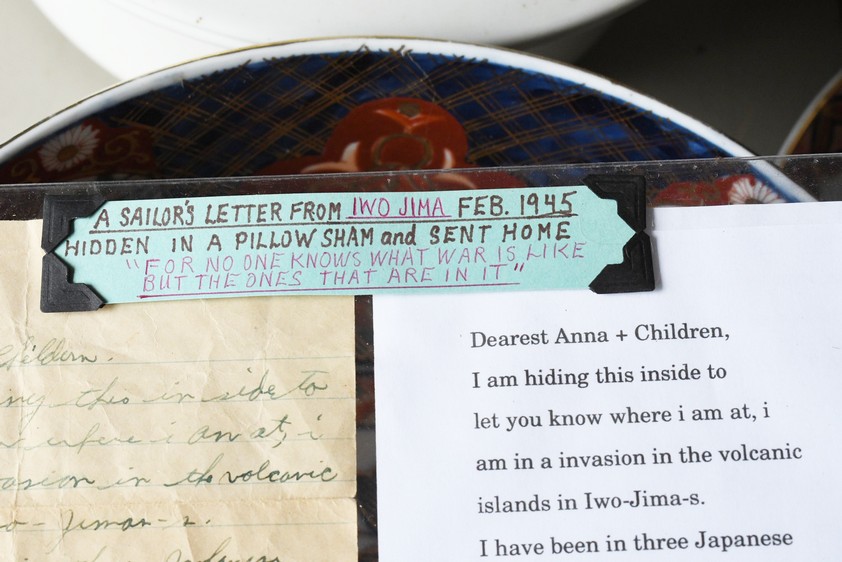 A SAILOR'S LETTER FROM IWO JIMA FEB. 1945
HIDDEN IN A PILLOW SHAM and SENT HOME
"FOR NO ONE KNOWS WHAT WAR IS LIKE
BUT THE ONES THAT ARE IN IT"
Childern.
ing this in side to
where i am at, i
asion in the volcanic
o-Jiman-s.
Dearest Anna + Children,
I am hiding this inside to
let you know where i am at, i
am in a invasion in the volcanic
islands in Iwo-Jima-s.
I have been in three Japanese